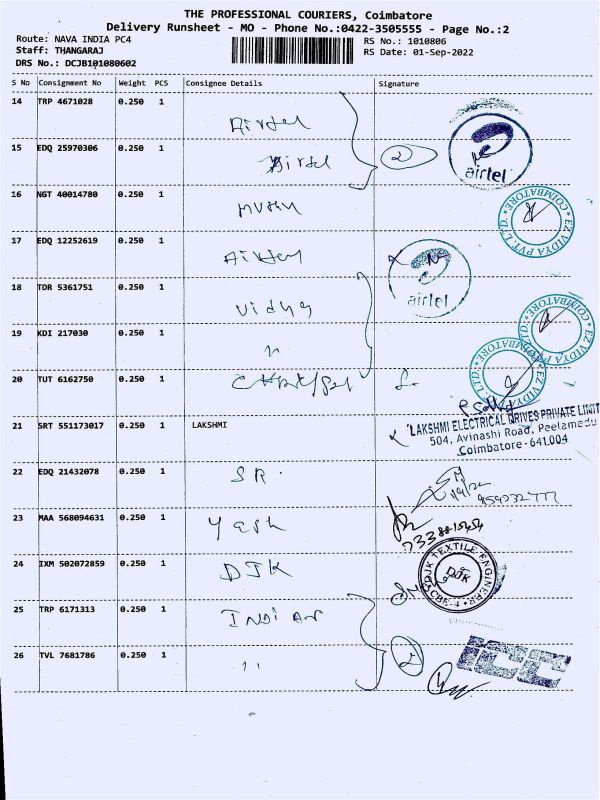 THE PROFESSIONAL COURIERS, Coimbatore
Delivery Runsheet - MO - Phone No.:0422-3505555 - Page No.:2
Route: NAVA INDIA PC4
RS No.: 1010806
Staff: THANGARAJ
RS Date: 01-Sep-2022
DRS No.: DCJB101080602
S No Consignment No Weight PCS Consignee Details Signature
14 TRP 4671028 0.250 1
Airtel
15 EDQ 25970306 0.250 1
Airtel 2
airtel
16 NGT 40014780 0.250 1
EZ VIDYA PVT. LTD. COIMBATORE
17 EDQ 12252619 0.250 1
Airtel
airtel
18 TDR 5361751 0.250 1
Vidhy
EZ VIDYA PVT. LTD. COIMBATORE
19 KDI 217030 0.250 1
"
EZ VIDYA PVT. LTD. COIMBATORE
20 TUT 6162750 0.250 1
21 SRT 551173017 0.250 1 LAKSHMI
LAKSHMI ELECTRICAL DRIVES PRIVATE LIMIT
504, Avinashi Road, Peelamedu
Coimbatore - 641 004
22 EDQ 21432078 0.250 1
SR.
23 MAA 568094631 0.250 1
Yesh
24 IXM 502072859 0.250 1
DJK
DJK TEXTILE ENGINEER
DJK
CBE-4
25 TRP 6171313 0.250 1
INDIAN
26 TVL 7681786 0.250 1
" 2
ICC